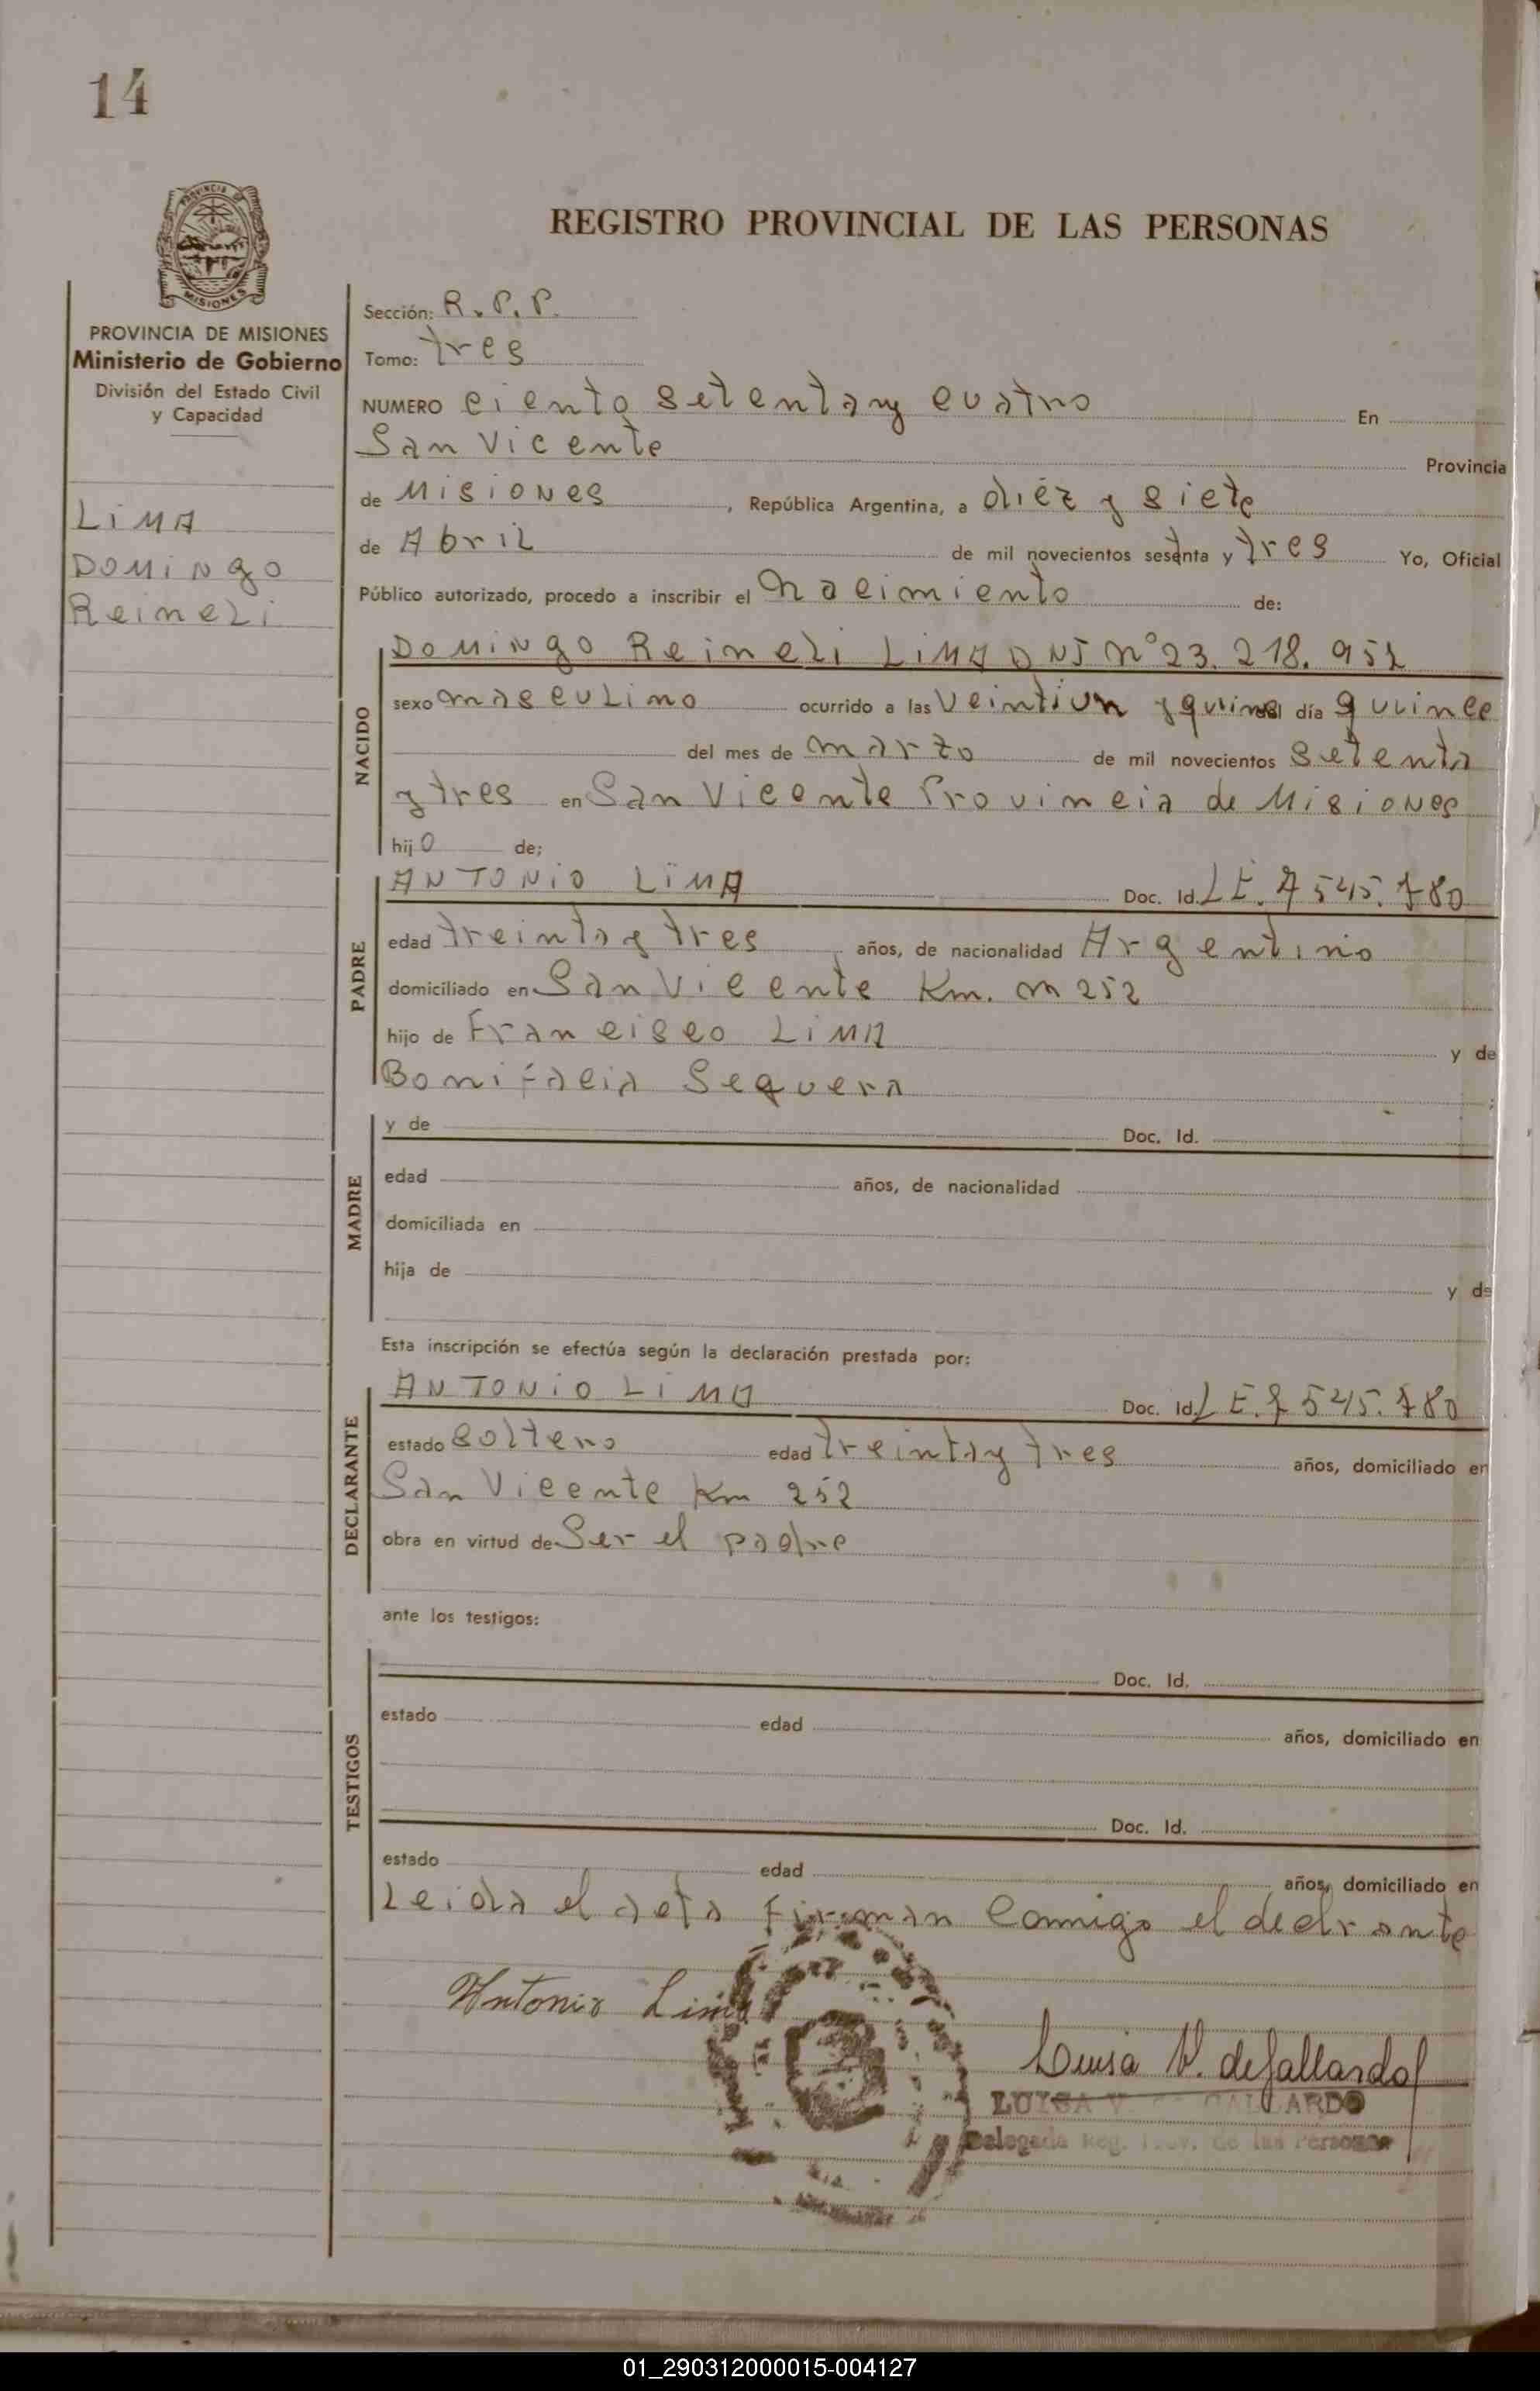 14
REGISTRO PROVINCIAL DE LAS PERSONAS
PROVINCIA DE
MISIONES
PROVINCIA DE MISIONES
Ministerio de Gobierno
División del Estado Civil
y Capacidad
LIMA
DOMINGO
Reineli
Sección: R.P.P.
Tomo: tres
NUMERO ciento setenta y cuatro En
San Vicente Provincia
de Misiones, República Argentina, a diéz y siete
de Abril de mil novecientos setenta y tres Yo, Oficial
Público autorizado, procedo a inscribir el nacimiento de:
Domingo Reineli LIMA DNI n° 23.218.952
NACIDO
sexo masculino ocurrido a las veintiun y quince del día quince
del mes de marzo de mil novecientos setenta
y tres en San Vicente Provincia de Misiones
hijo de;
PADRE
ANTONIO LIMA Doc. Id. LE. 7545.780
edad treinta y tres años, de nacionalidad Argentino
domiciliado en San Vicente Km. m 252
hijo de Francisco LIMA y de
Bonifacia Sequera ;
MADRE
y de Doc. Id.
edad años, de nacionalidad
domiciliada en
hija de y de
Esta inscripción se efectúa según la declaración prestada por:
DECLARANTE
ANTONIO LIMA Doc. Id. LE. 7545.780
estado soltero edad treinta y tres años, domiciliado en
San Vicente Km 252
obra en virtud de Ser el padre
ante los testigos:
TESTIGOS
Doc. Id.
estado edad años, domiciliado en
Doc. Id.
estado edad años, domiciliado en
Leida el acta firman conmigo el declrante
Antonio Lima
Luisa V. de Gallardo
LUISA V. DE GALLARDO
Delegada Reg. Prov. de las Personas
01_290312000015-004127